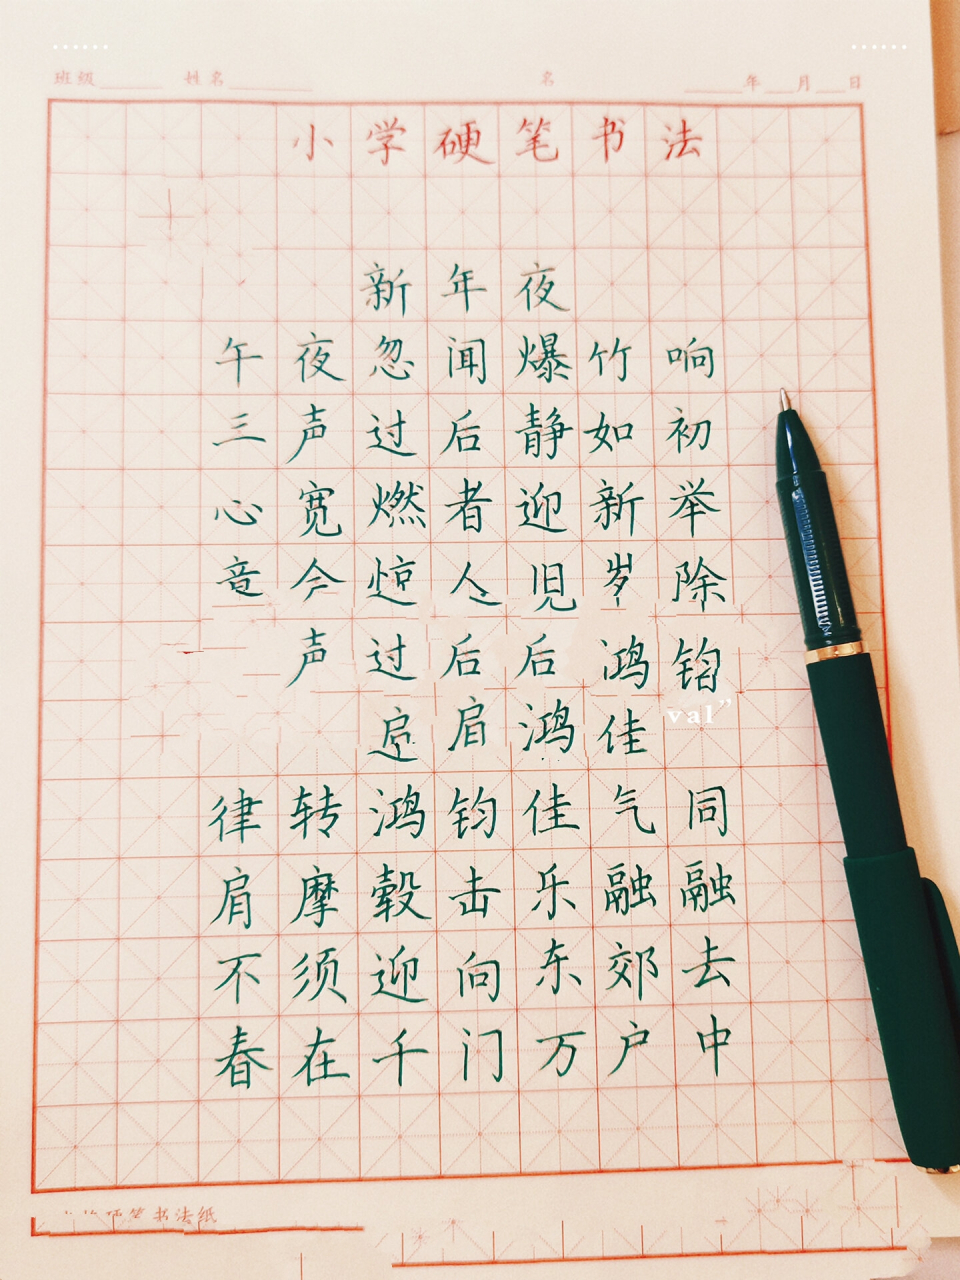 班级 姓名 名 年 月 日
小学硬笔书法
新年夜
午夜忽闻爆竹响
三声过后静如初
心宽燃者迎新举
竟今惊人儿岁除
声过后后鸿钧
肩鸿佳
val”
律转鸿钧佳气同
肩摩毂击乐融融
不须迎向东郊去
春在千门万户中
笔书法纸